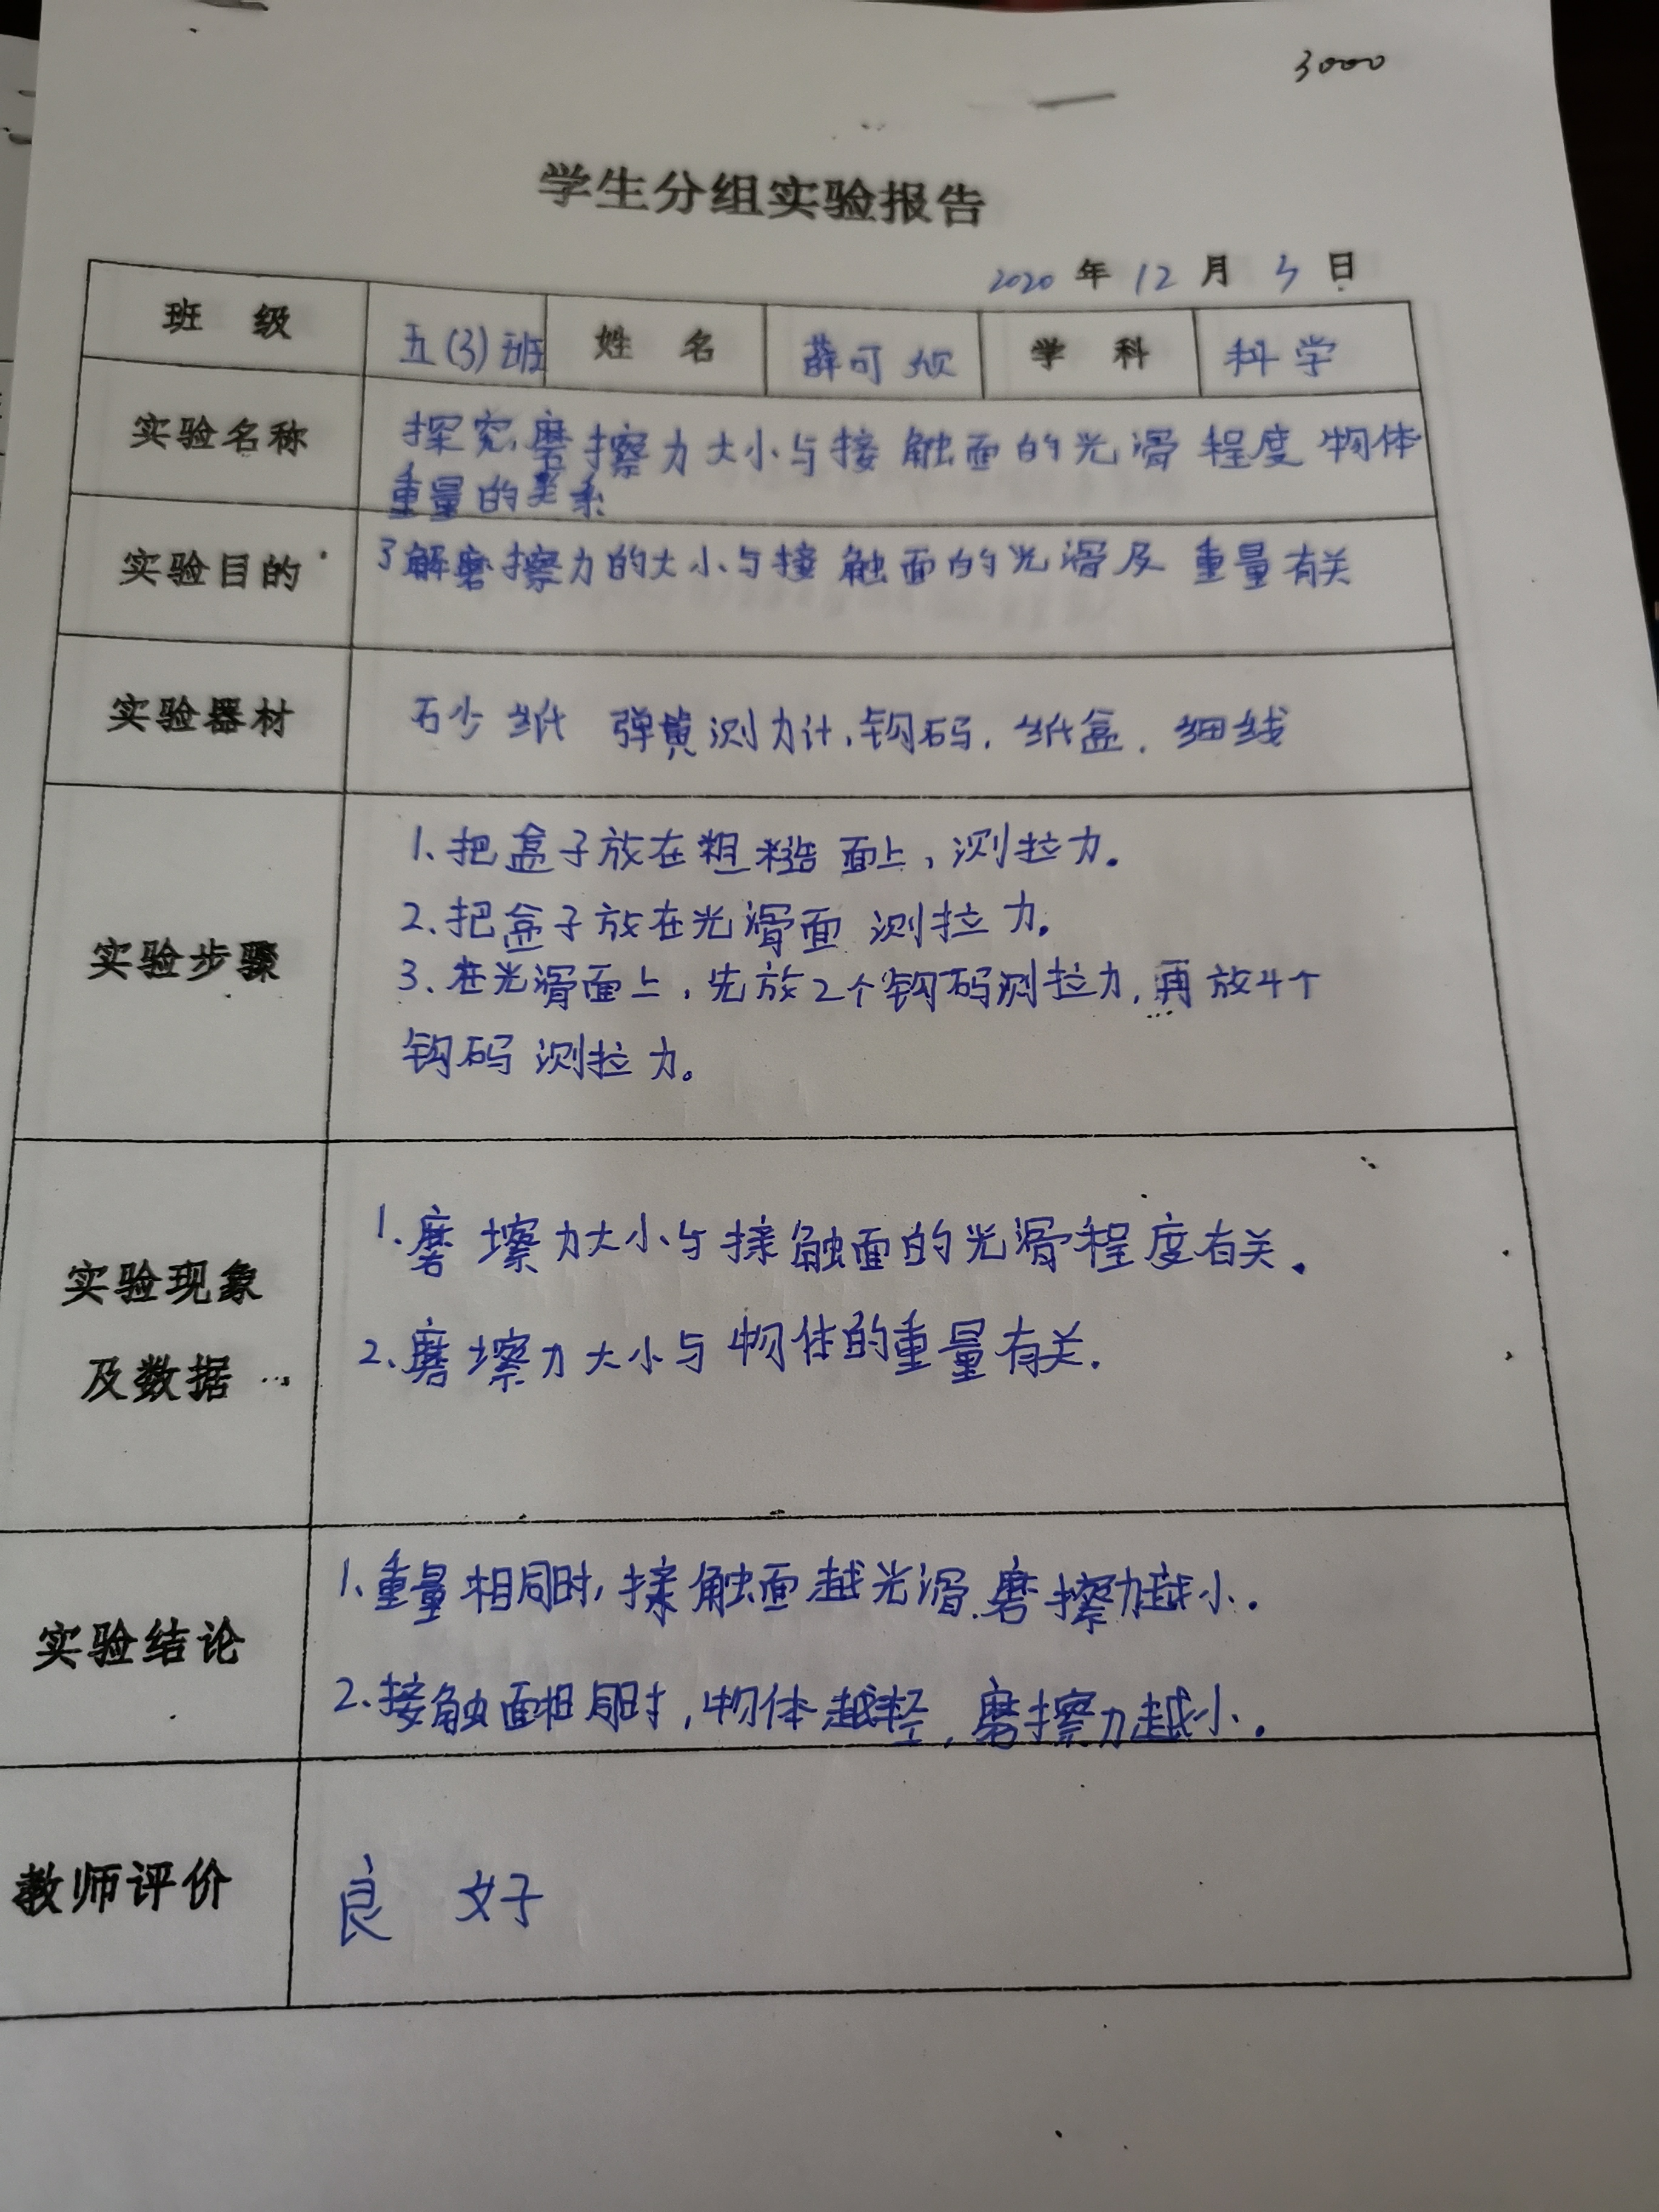 3000
学生分组实验报告
2020 年 12 月 3 日
班 级 五(3)班 姓 名 薛可欣 学 科 科学
实验名称 探究磨擦力大小与接触面的光滑程度物体
重量的关系
实验目的 了解磨擦力的大小与接触面的光滑及重量有关
实验器材 砂纸 弹簧测力计,钩码,纸盒,细线
1、把盒子放在粗糙面上,测拉力。
2、把盒子放在光滑面 测拉力。
实验步骤
3、在光滑面上,先放2个钩码测拉力,再放4个
钩码测拉力。
实验现象
及数据
1、磨擦力大小与接触面的光滑程度有关。
2、磨擦力大小与物体的重量有关。
实验结论
1、重量相同时,接触面越光滑,磨擦力越小。
2、接触面相同时,物体越轻,磨擦力越小。
教师评价 良好